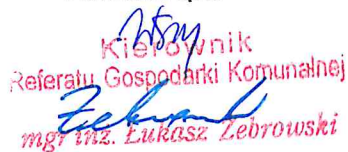 Kierownik
Referatu Gospodarki Komunalnej
mgr inż. Łukasz Żebrowski